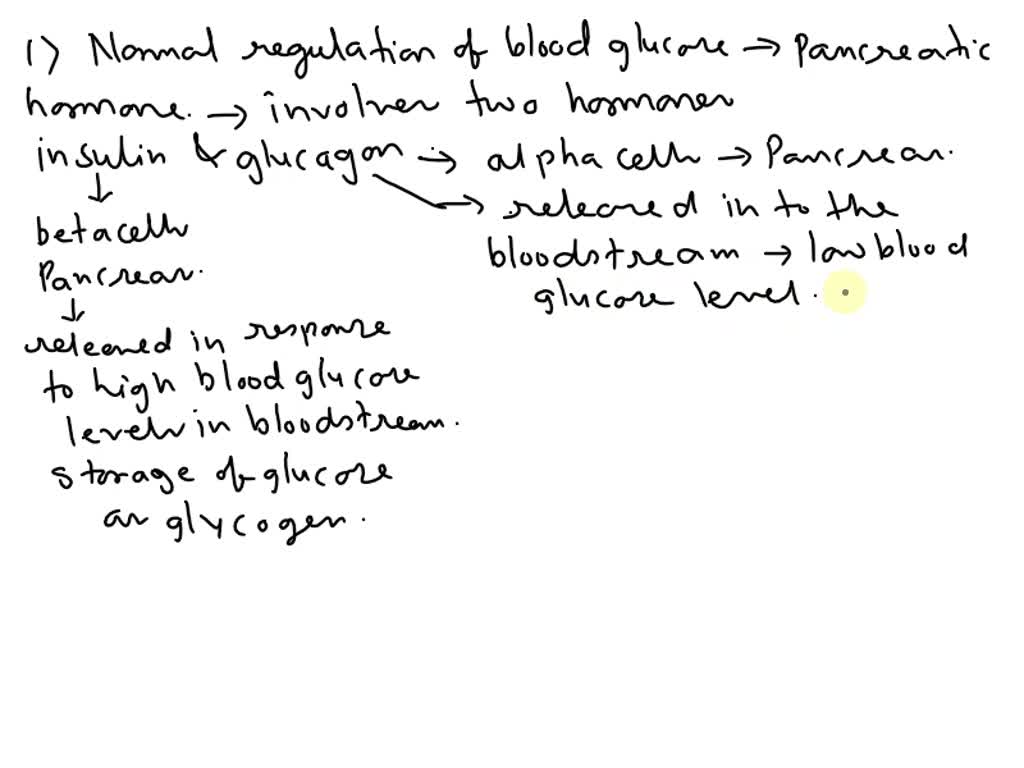 1) Normal regulation of blood glucose → Pancreatic
hormone. → involves two hormones
insulin & glucagon → alpha cells → Pancreas.
↓ → released in to the
beta cells bloodstream → low blood
Pancreas. glucose level.
↓
released in response
to high blood glucose
levels in bloodstream.
storage of glucose
as glycogen.